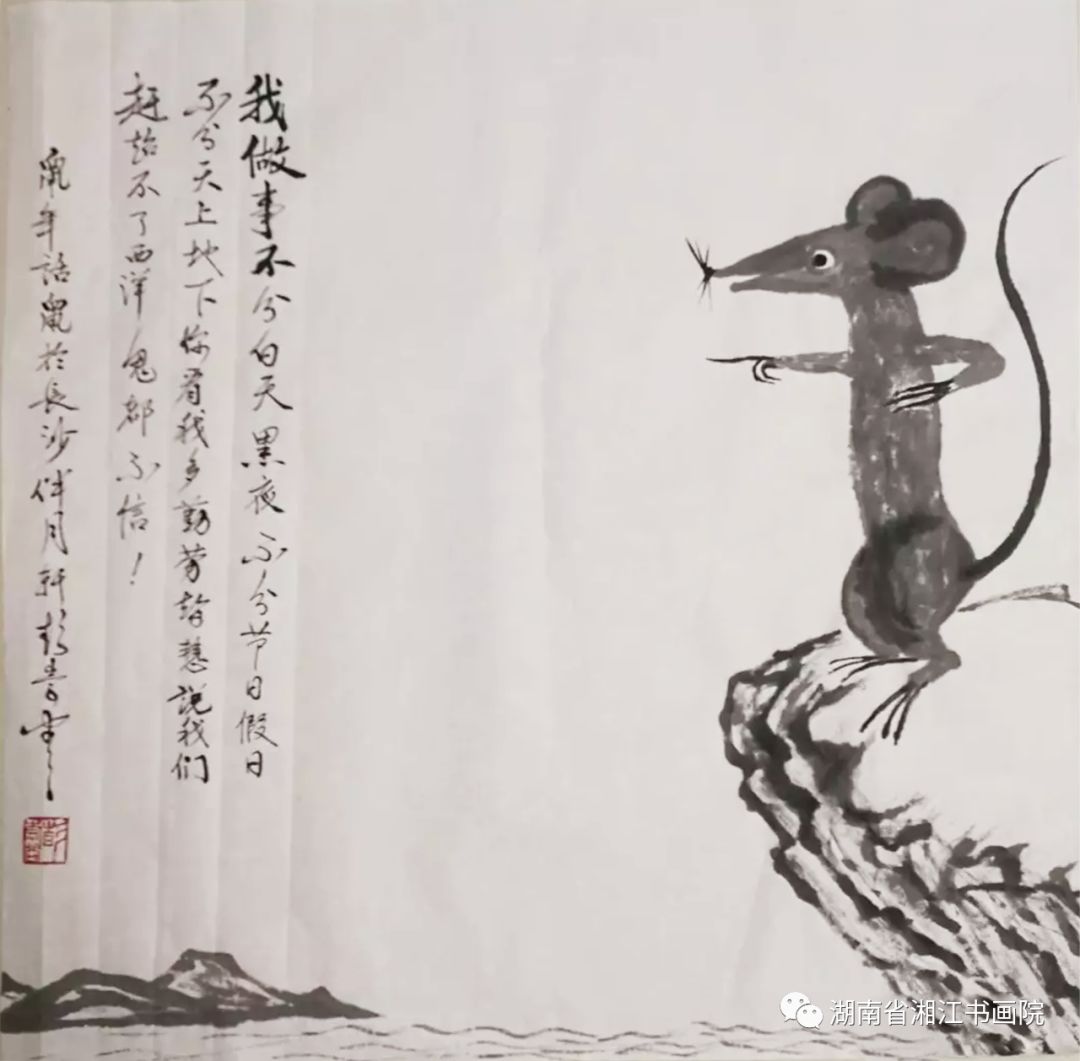 我做事不分白天黑夜不分节日假日
不分天上地下你看我多勤劳智慧説我们
赶超不了西洋鬼都不信！
鼠年話鼠於長沙伴月軒彭青
湖南省湘江书画院